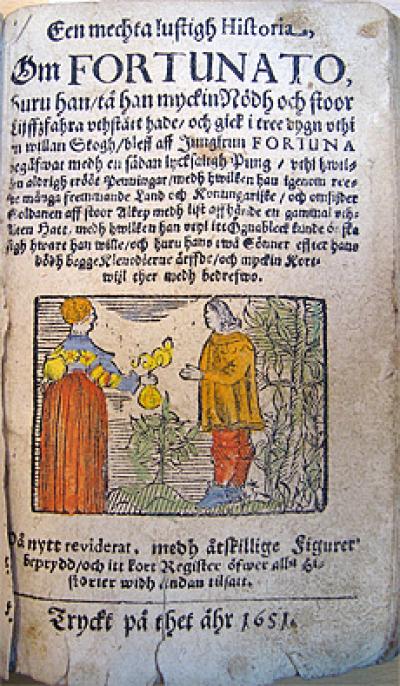 Een mechta lustigh Historia,
Om FORTUNATO,
huru han/tå han myckin Nödh och stoor
Lijffzfahra vthstått hade/och gick i tree dygn vthi
en willan Skogh/bleff aff Jungfrun FORTUNA
begåfwat medh en sådan lycksaligh Pung/vthi hwil-
en aldrigh trööt Penningar/medh hwilken han igenom ree-
se många fremmande Land och Konungarijke/och omsijder
Soldanen aff stoor Alkey medh list aff hände en gammal
liten Hatt, medh hwilken han vthi itt Ögnableck kunde önska
sigh hware han wille/och huru hans twå Söner effter hans
dödh begge Klenodierne ärffde/och myckin Kort-
wijl ther medh bedrefwo.
På nytt reviderat, medh åtskillige Figurer
beprydd/och itt kort Register öfwer alla Hi-
storier widh endan tilsatt.
Tryckt på thet åhr 1651.